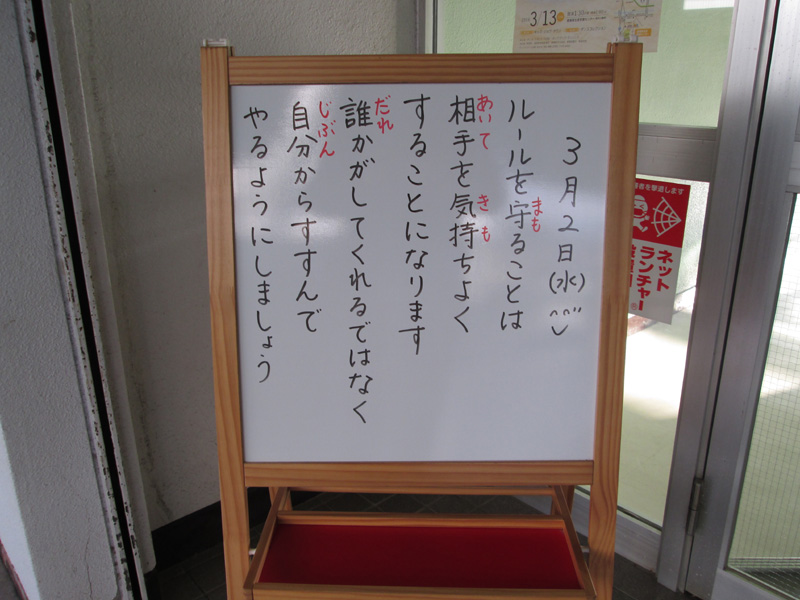 3月2日(水)
ルールを守ることは
まも
相手を気持ちよく
あいて
きも
することになります
誰かがしてくれるではなく
だれ
自分からすすんで
じぶん
やるようにしましょう
3/13
ネット
ランチャー